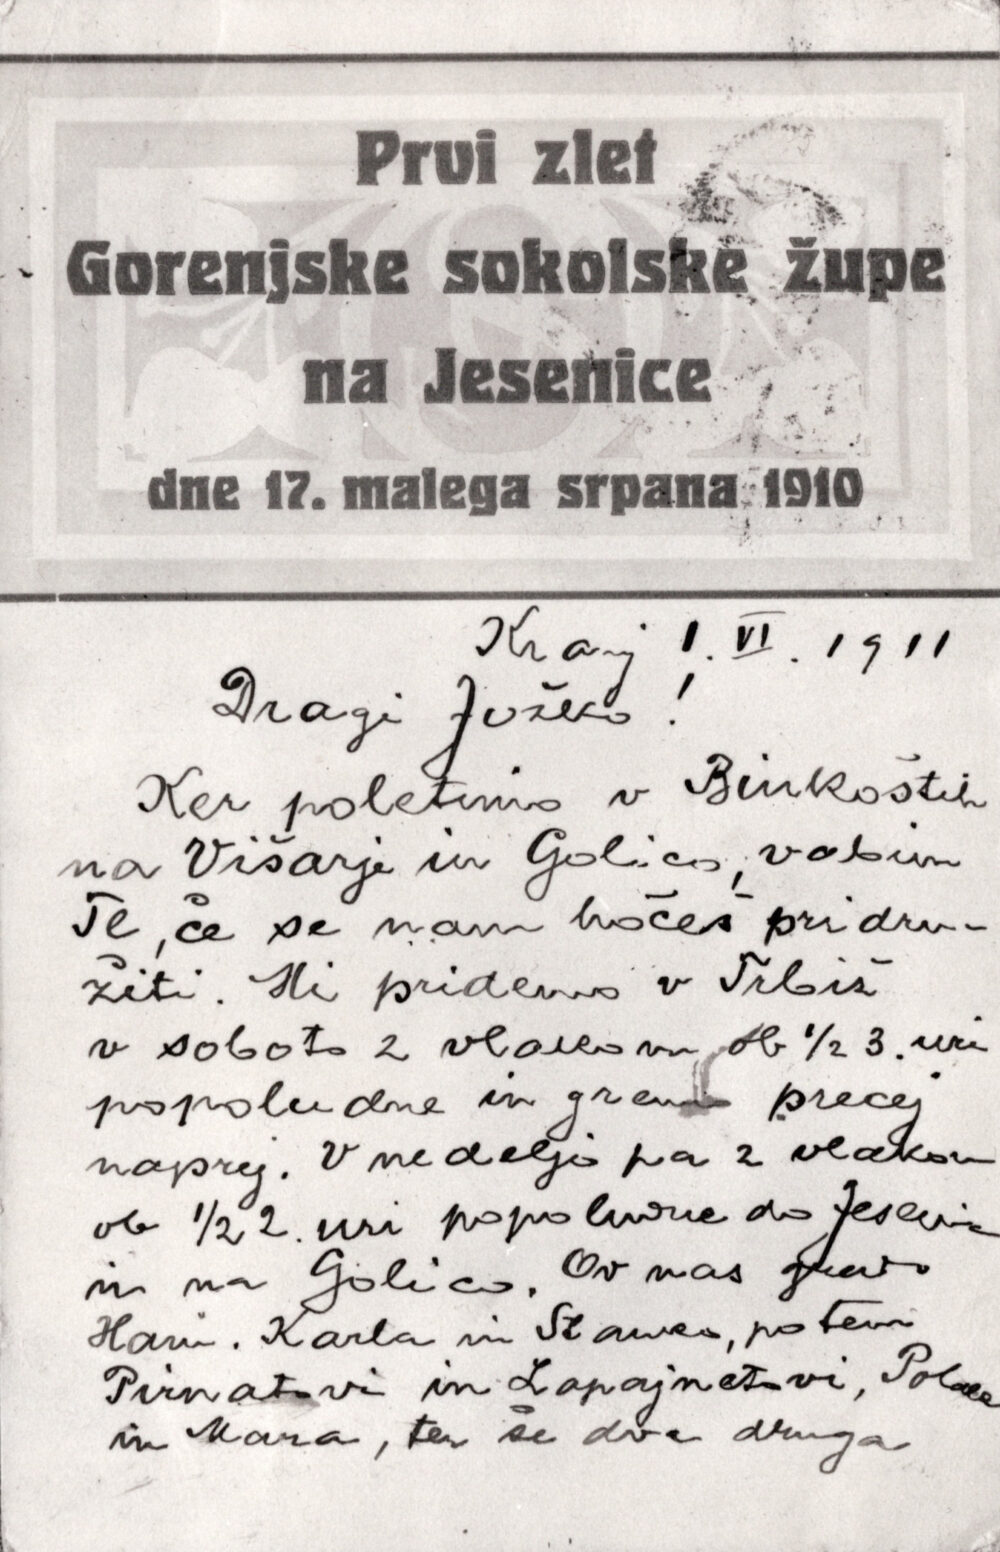 Prvi zlet
Gorenjske sokolske župe
na Jesenice
dne 17. malega srpana 1910
Kranj 1. VI. 1911
Dragi Joško!
Ker poletimo v Binkoštih
na Višarje in Golico, vabim
Te, če se nam hočeš pridru-
žiti. Mi pridemo v Trbiž
v soboto z vlakom ob 1/2 3. uri
popoludne in gremo precej
naprej. V nedeljo pa z vlakom
ob 1/2 2. uri popoludne do Jesenic
in na Golico. Od nas gredo
Hari. Karla in Stanko, potem
Pirnatovi in Lapajnetovi,
in Mara, ter še dva druga